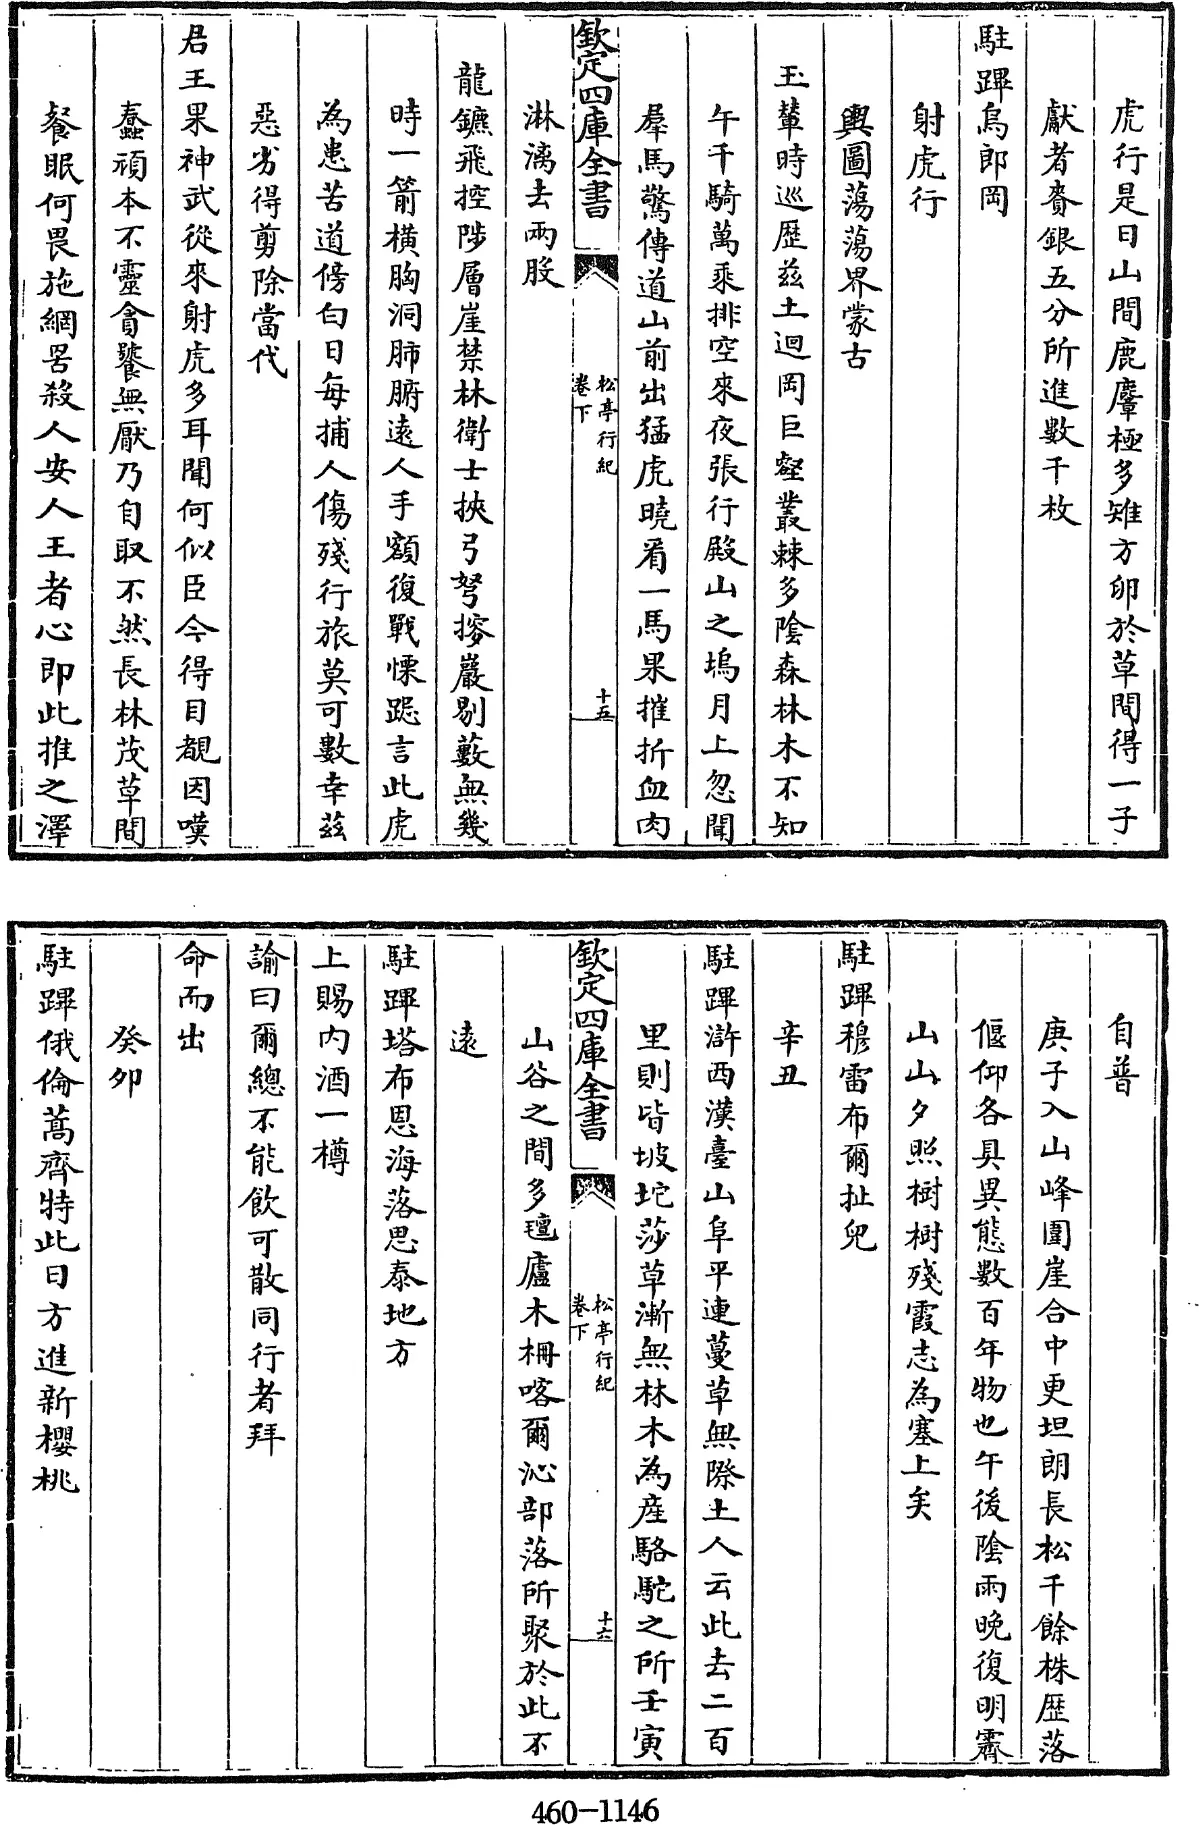 虎行是日山間鹿麞極多雉方卵於草間得一子
獻者賚銀五分所進數千枚
駐蹕烏郎岡
射虎行
輿圖蕩蕩界蒙古
玉輦時巡歷茲土迴岡巨壑叢棘多陰森林木不知
午千騎萬乘排空來夜張行殿山之塢月上忽聞
羣馬驚傳道山前出猛虎曉看一馬果摧折血肉
淋漓去兩股
欽定四庫全書
松亭行紀
卷下
十五
龍鑣飛控陟層崖禁林衛士挾弓弩搜巖剔藪無幾
時一箭橫胸洞肺腑遠人手額復戰慄跽言此虎
為患苦道傍白日每捕人傷殘行旅莫可數幸茲
惡劣得剪除當代
君王果神武從來射虎多耳聞何似臣今得目覩因嘆
蠢頑本不靈貪饕無厭乃自取不然長林茂草間
餐眠何畏施網罟殺人安人王者心即此推之澤
自普
庚子入山峰圍崖合中更坦朗長松千餘株歷落
偃仰各具異態數百年物也午後陰雨晚復明霽
山山夕照樹樹殘霞志為塞上矣
駐蹕穆雷布爾扯兒
辛丑
駐蹕滸西漢臺山阜平連蔓草無際土人云此去二百
里則皆坡坨莎草漸無林木為産駱駝之所壬寅
欽定四庫全書
松亭行紀
卷下
十六
山谷之間多氊廬木柵喀爾沁部落所聚於此不
遠
駐蹕塔布恩海落思泰地方
上賜内酒一樽
諭曰爾總不能飲可散同行者拜
命而出
癸卯
駐蹕俄倫蒿齊特此日方進新櫻桃
460-1146